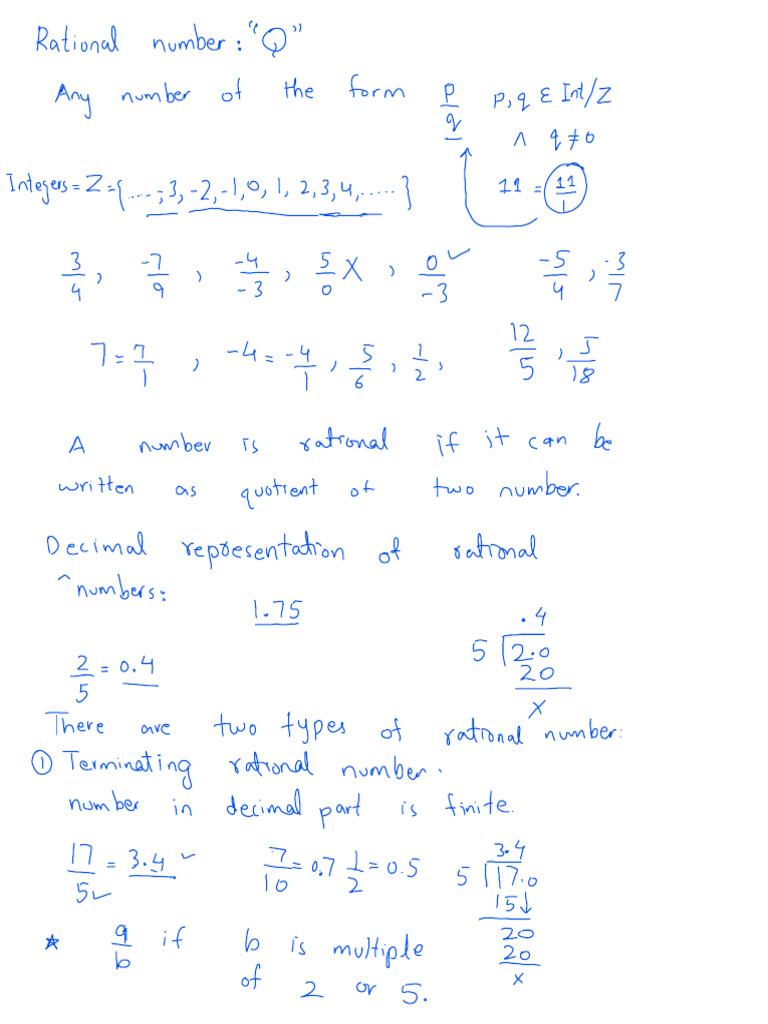 Rational number: "Q"
Any number of the form p/q p, q ε Int/Z
∧ q≠0
Integers = Z = {....,-3,-2,-1,0,1,2,3,4,.....} 11 = 11/1
3/4, -7/9, -4/-3, 5/0 X, 0/-3 ✓ -5/4, -3/7
7 = 7/1, -4 = -4/1, 5/6, 1/2, 12/5, 5/18
A number is rational if it can be
written as quotient of two number.
Decimal representation of rational
^ numbers:
1.75
2/5 = 0.4
.4
5 2.0
20
x
There are two types of rational number:
① Terminating rational number.
number in decimal part is finite.
17/5 ✓ = 3.4 ✓ 7/10 = 0.7 1/2 = 0.5
3.4
5 17.0
15↓
20
20
x
* a/b if b is multiple
of 2 or 5.